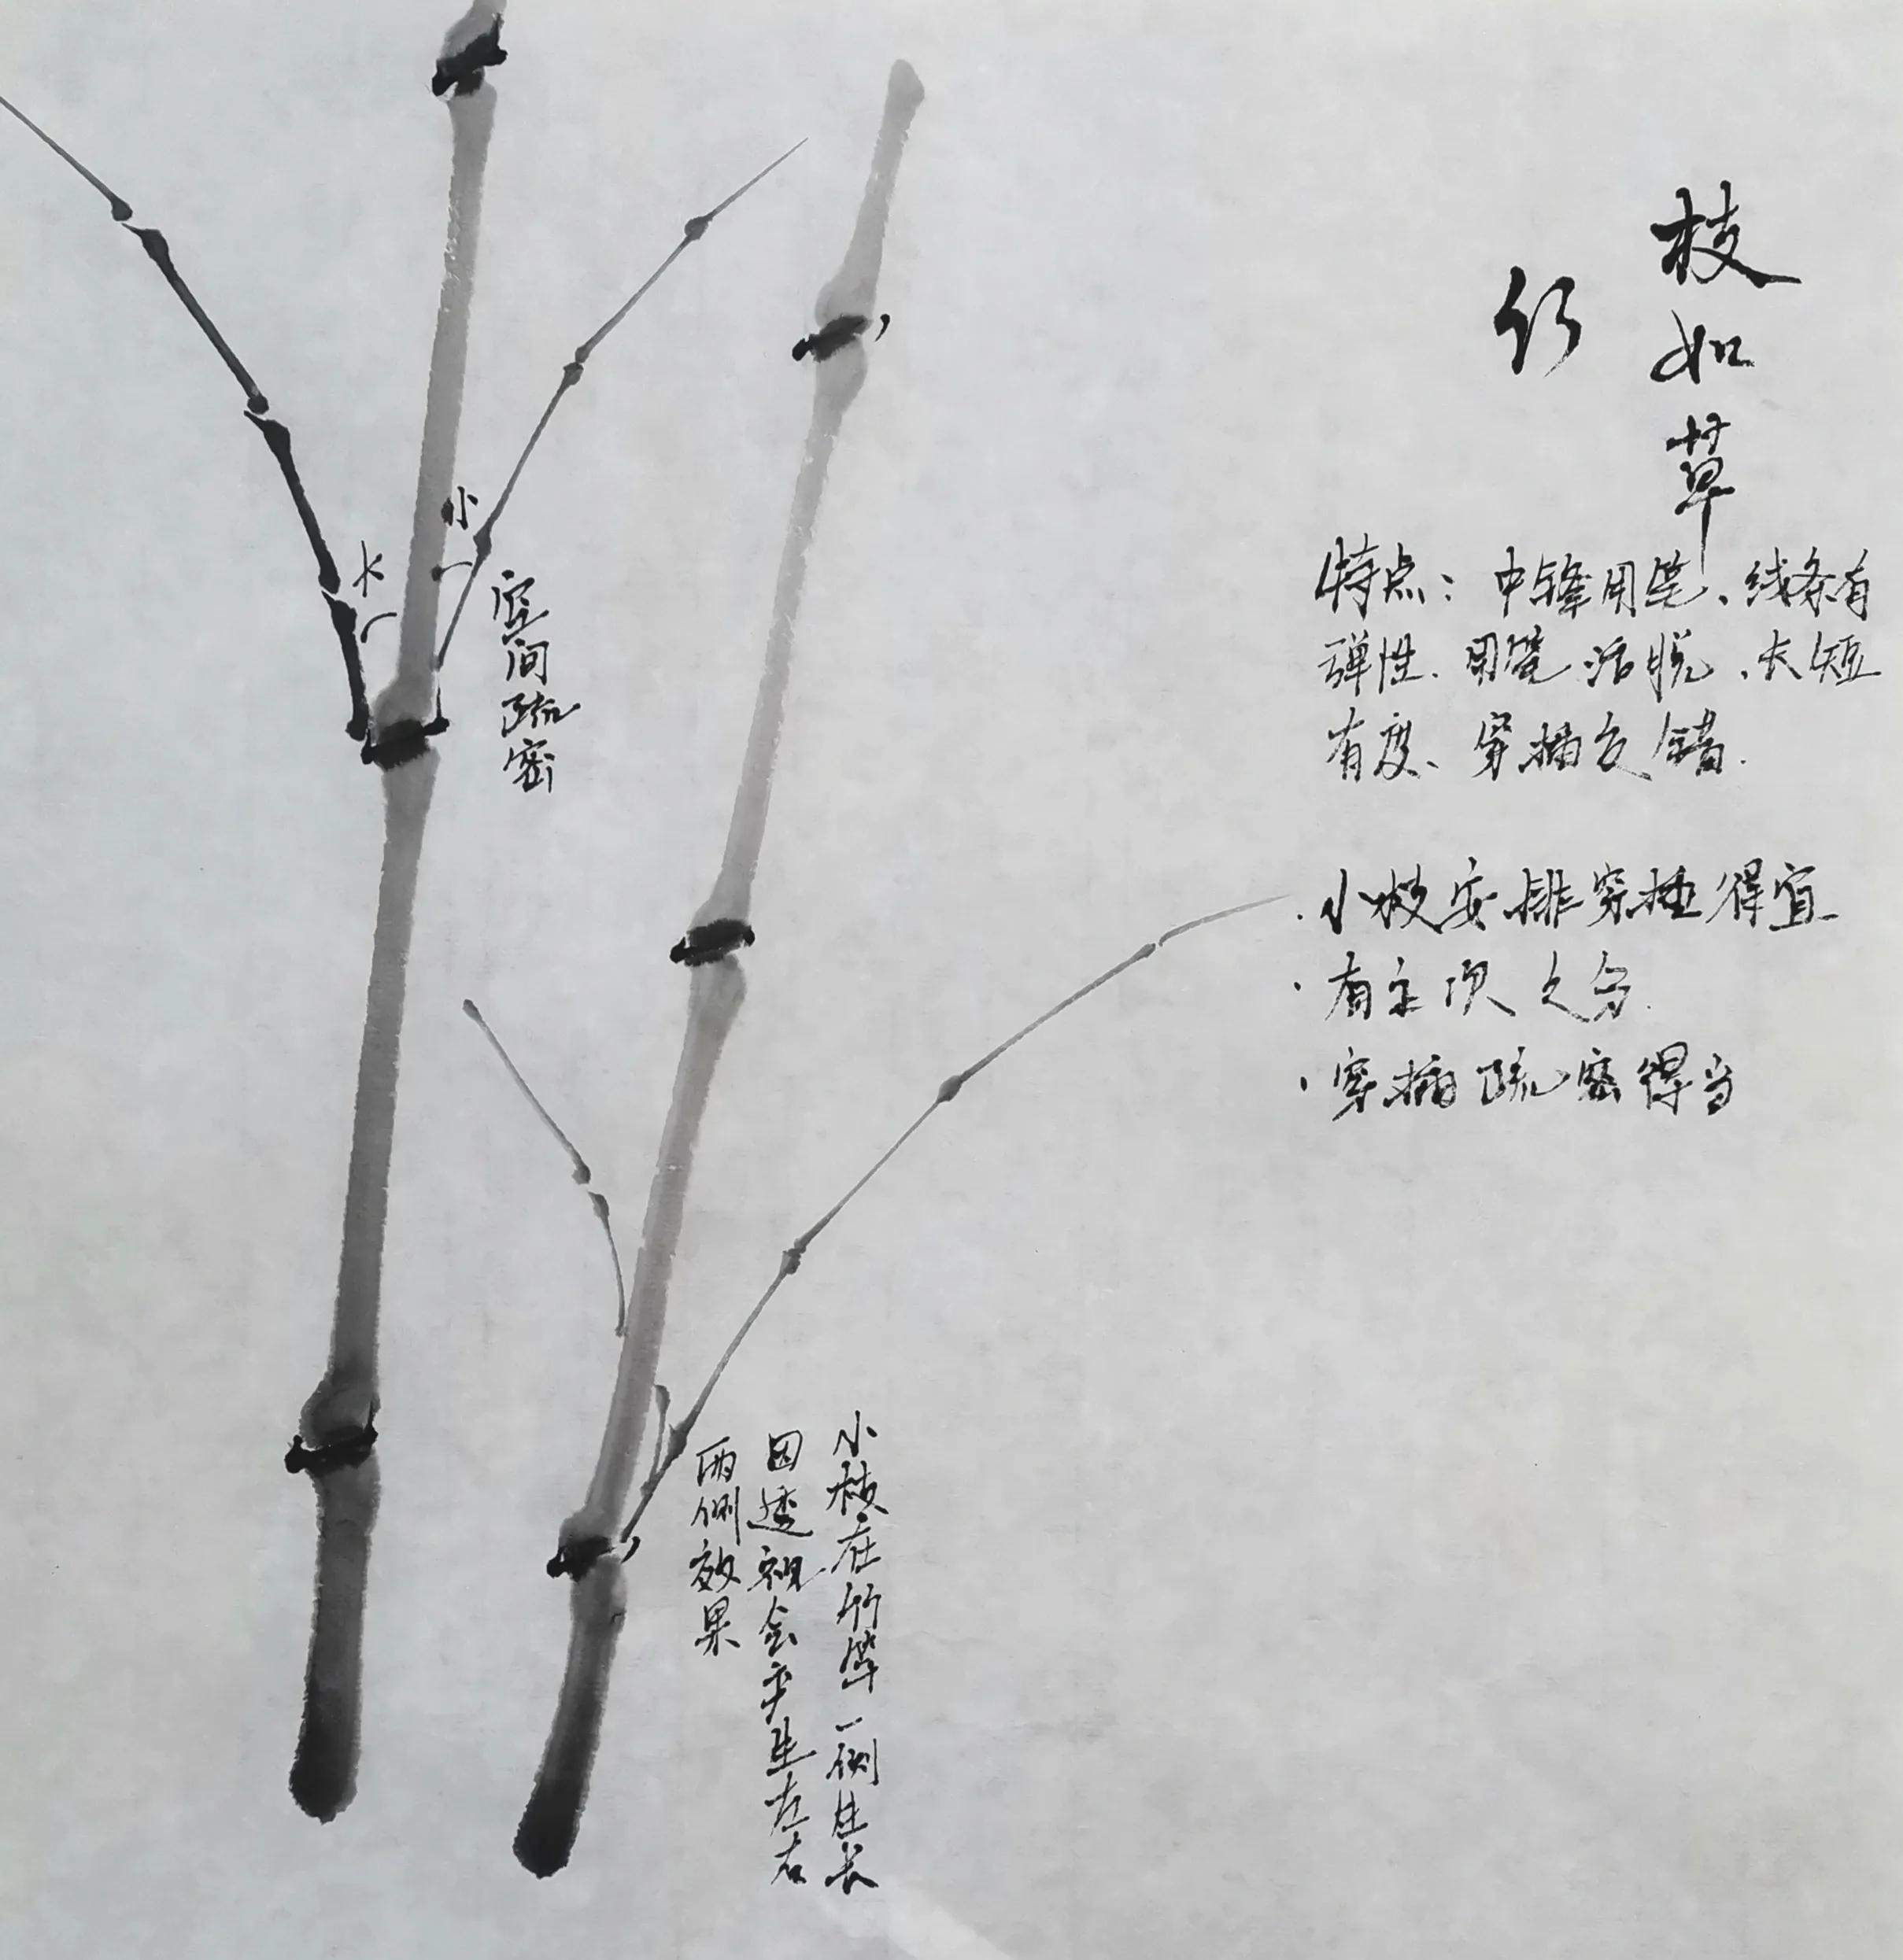 枝如草
特点：中锋用笔、线条有
弹性.用笔活脱、长短
有度、穿插交错.
·小枝安排穿插得宜
·有主次之分.
·穿插疏密得当
大
小
空间疏密
小枝在竹竿一侧生长
因透视会产生左右
两侧效果